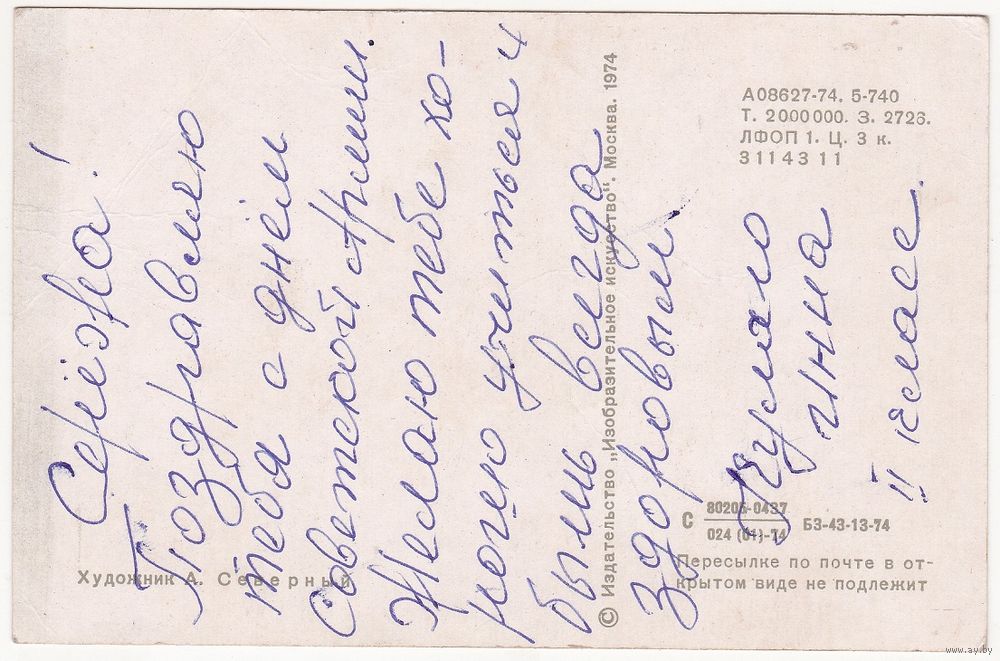 Серёжа!
Поздравляю
тебя с днём
советской Армии.
Желаю тебе хо-
рошо учиться и
быть всегда
здоровым
Инна
II класс.
Художник А. Северный
© Издательство „Изобразительное искусство“. Москва. 1974
А08627-74. 5-740
Т. 2000000. З. 2726.
ЛФОП 1. Ц. 3 к.
3114311
С 80205-0437
024 (01)-74 БЗ-43-13-74
Пересылке по почте в от-
крытом виде не подлежит
www.ay.by